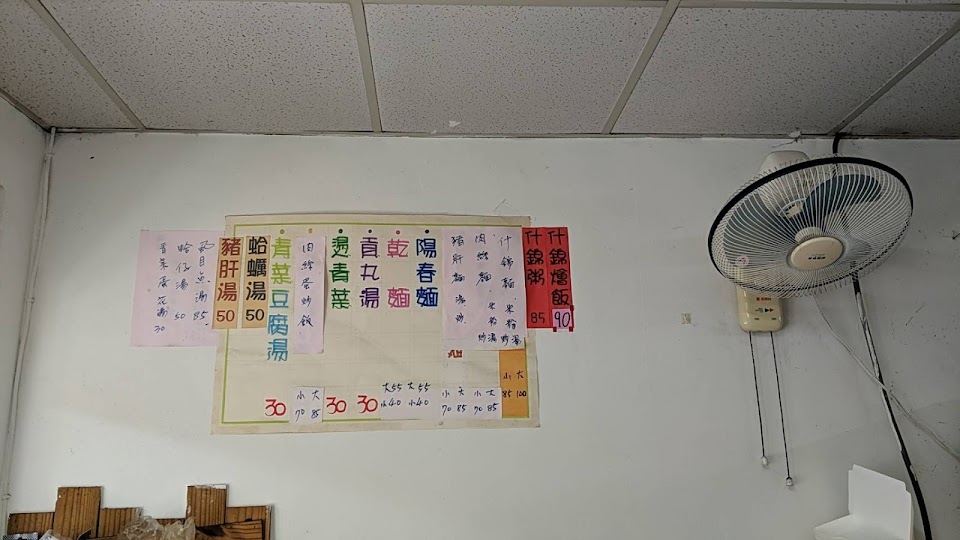 什錦燴飯 90
什錦粥 85
什錦麵.米粉 炒 湯
大 100
小 85
肉絲麵.米粉 炒 湯
大 85
小 70
豬肝麵 湯 炒
大 85
小 70
陽春麵
大55
小40
乾麵
大55
小40
貢丸湯
30
燙青菜
30
肉絲蛋炒飯
大 85
小 70
青菜豆腐湯
30
蛤蠣湯 50
豬肝湯 50
虱目魚湯 85.
蛤仔湯 50
青菜蛋花湯 30